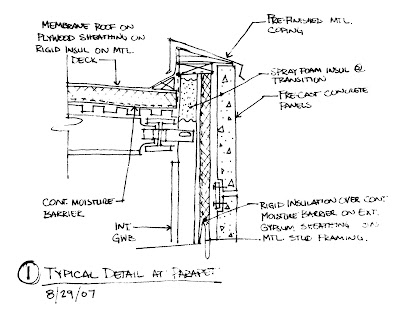 MEMBRANE ROOF ON
PLYWOOD SHEATHING ON
RIGID INSUL ON MTL.
DECK
PRE-FINISHED MTL.
COPING
SPRAY FOAM INSUL @
TRANSITION
PRE-CAST CONCRETE
PANELS
CONT. MOISTURE
BARRIER
INT.
GWB
RIGID INSULATION OVER CONT.
MOISTURE BARRIER ON EXT.
GYPSUM SHEATHING ON
MTL. STUD FRAMING.
1 TYPICAL DETAIL AT PARAPET
8/29/07